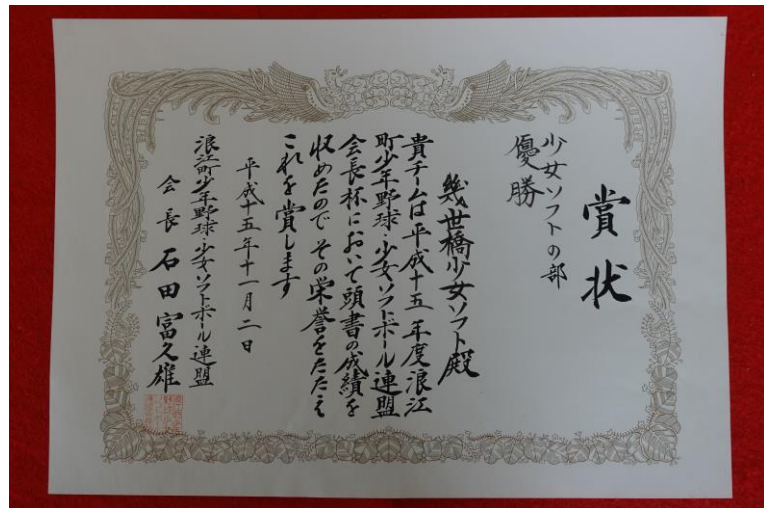 賞状
少女ソフトの部
優勝
幾世橋少女ソフト殿
貴チームは平成十五年度浪江
町少年野球・少女ソフトボール連盟
会長杯において頭書の成績を
収めたので その栄誉をたたえ
これを賞します
平成十五年十一月二日
浪江町少年野球・少女ソフトボール連盟
会長 石田富久雄